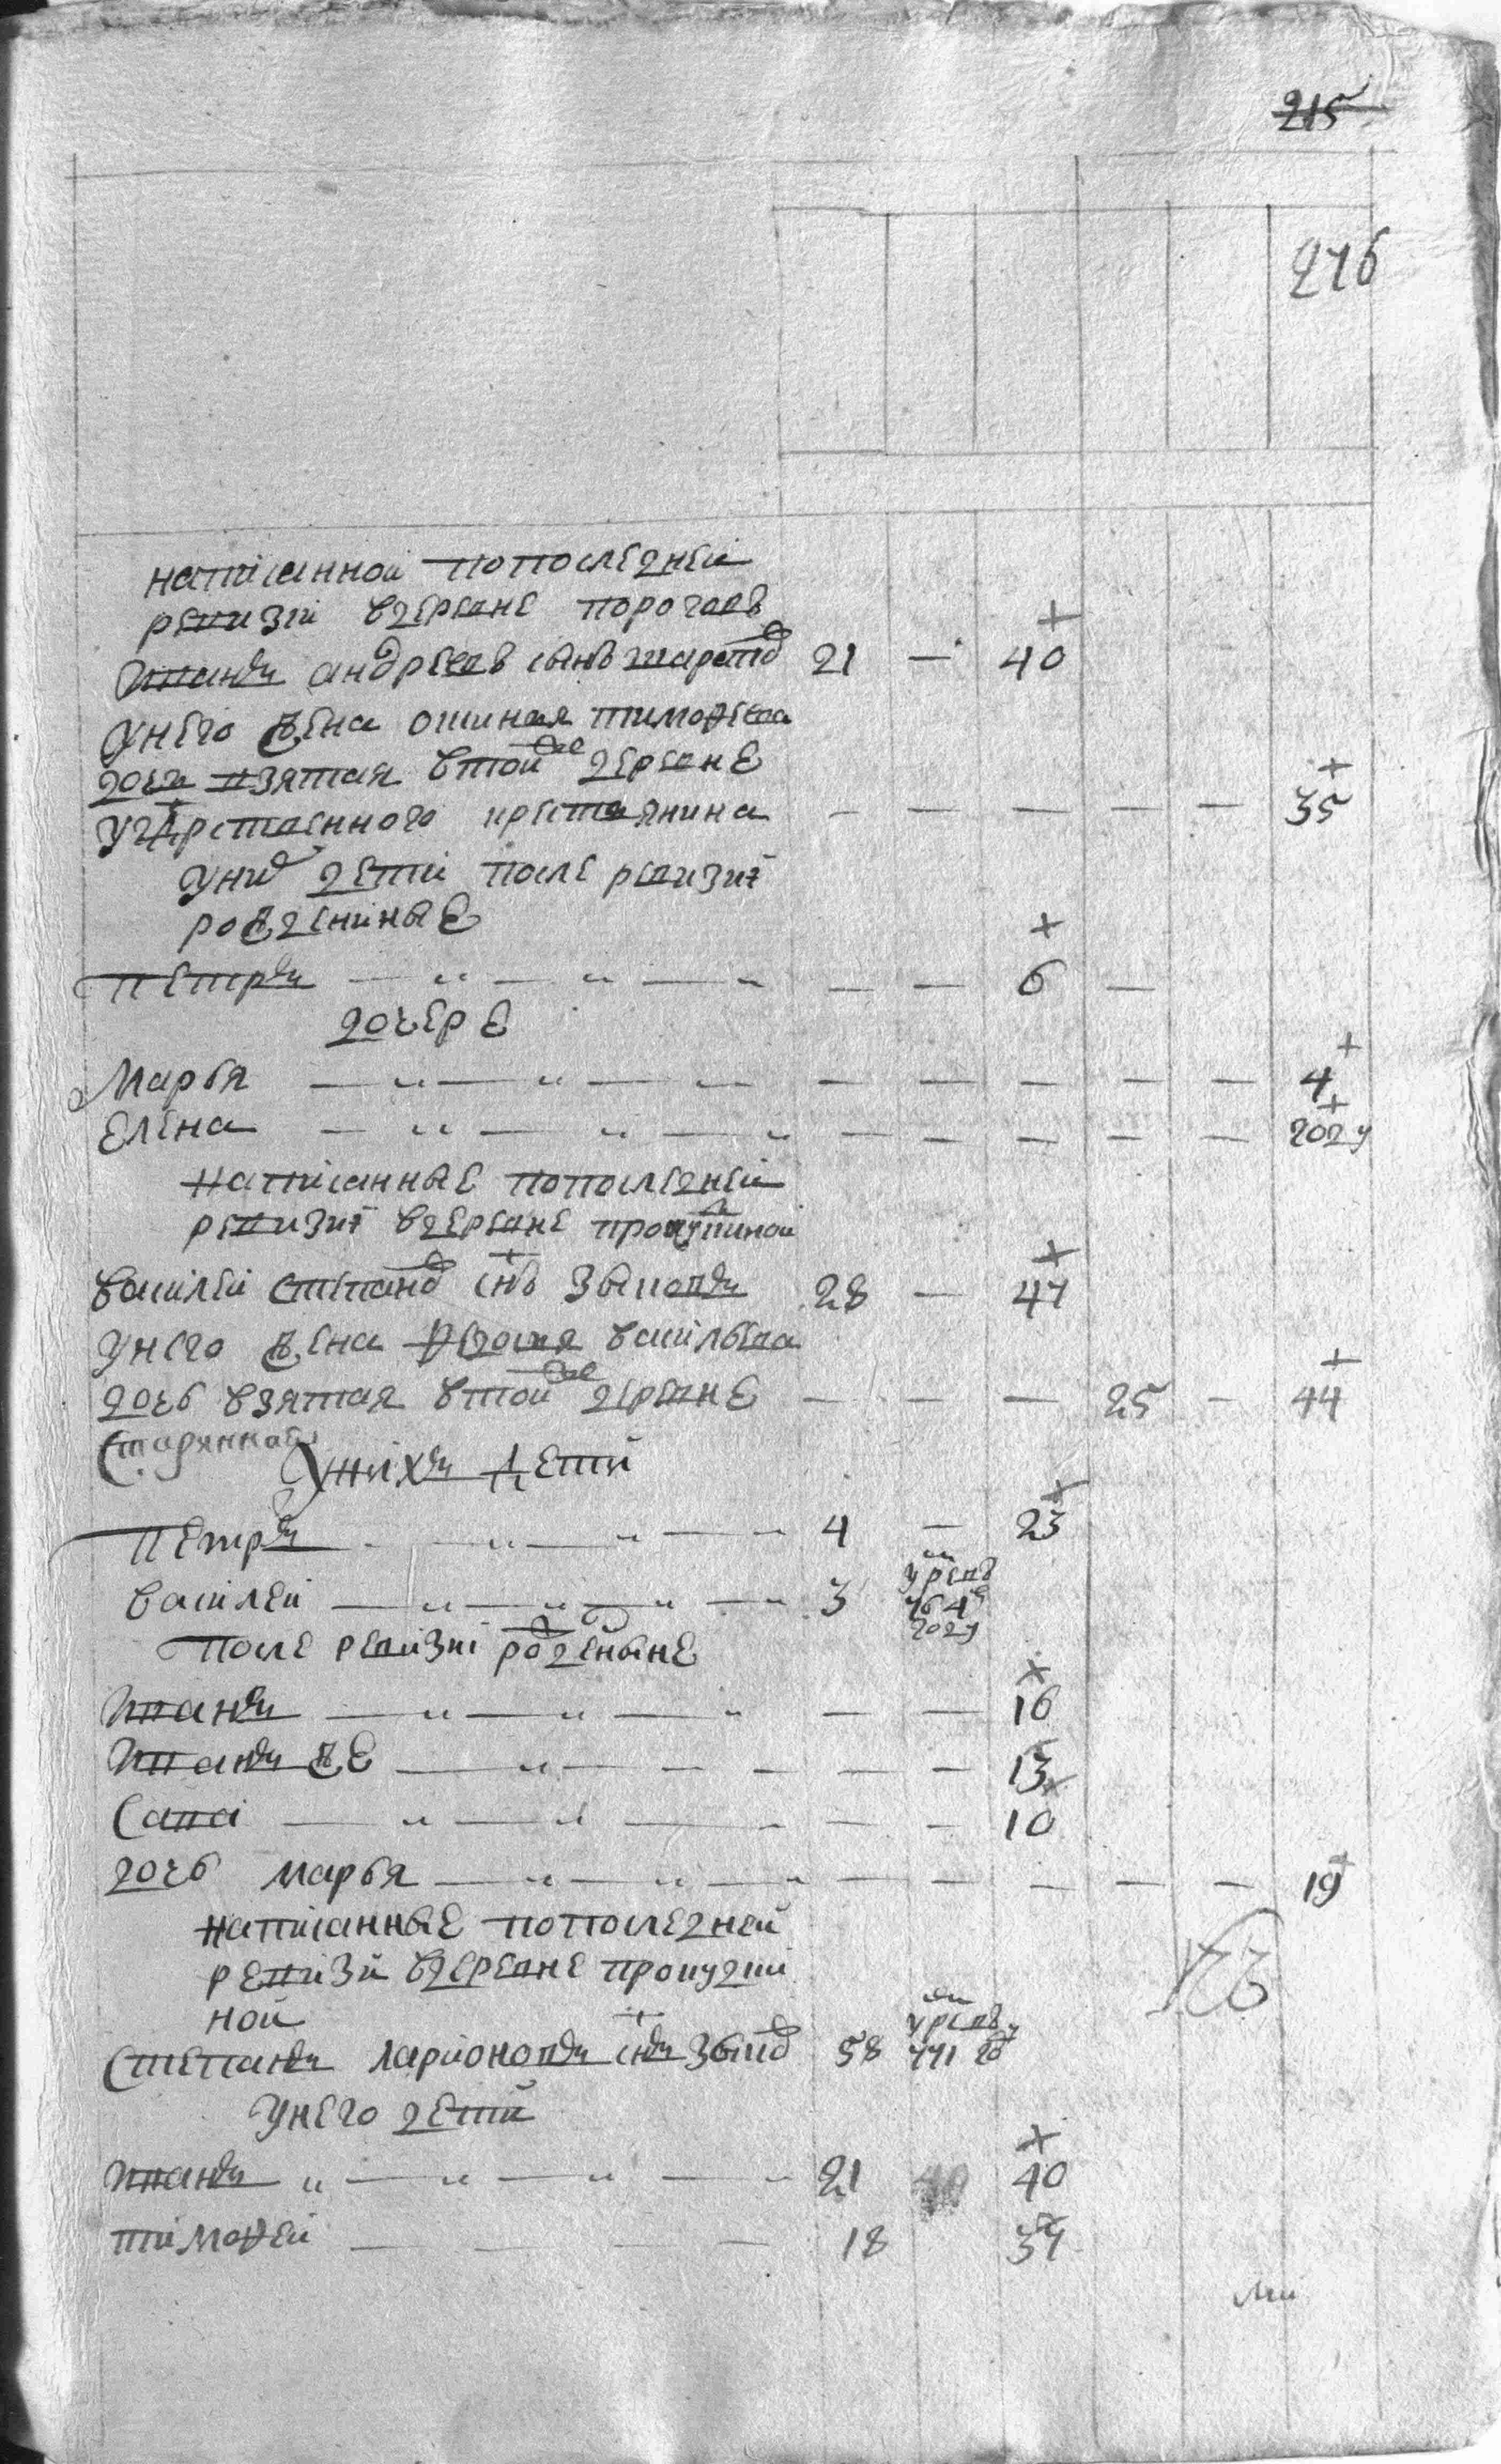 215
276
написанной попоследней
ревизии вдеревне порогаевъ
иванъ андреевъ сынъ 21 — 40
унего жена тимофеева
дочь взятая втой же деревне
крестьянина — — — — — 35
унихъ дети после ревизиї
рожденныѣ
петръ — — 6 —
дочере
Марья — — — — — 4
елена — — — — — году
написанные попоследней
ревизиї вдеревне
василей степановъ снъ зыковъ 28 — 47
унего жена федосия васильева
дочь взятая втой же деревне — — — 25 — 44
Старинной
Унихъ дети
петръ 4 — 23
василей 3 умре въ 764 году
после ревизиї рожденыне
иванъ — — 16
иванъ же — — 13
Сава — — 10
дочь марья — — — — — 19
написанные попоследней
ревизиї вдеревне
ной
степанъ ларионовъ снъ зыковъ 58 умре въ 771 го
унего дети
иванъ 21 40
тимофей 18 37